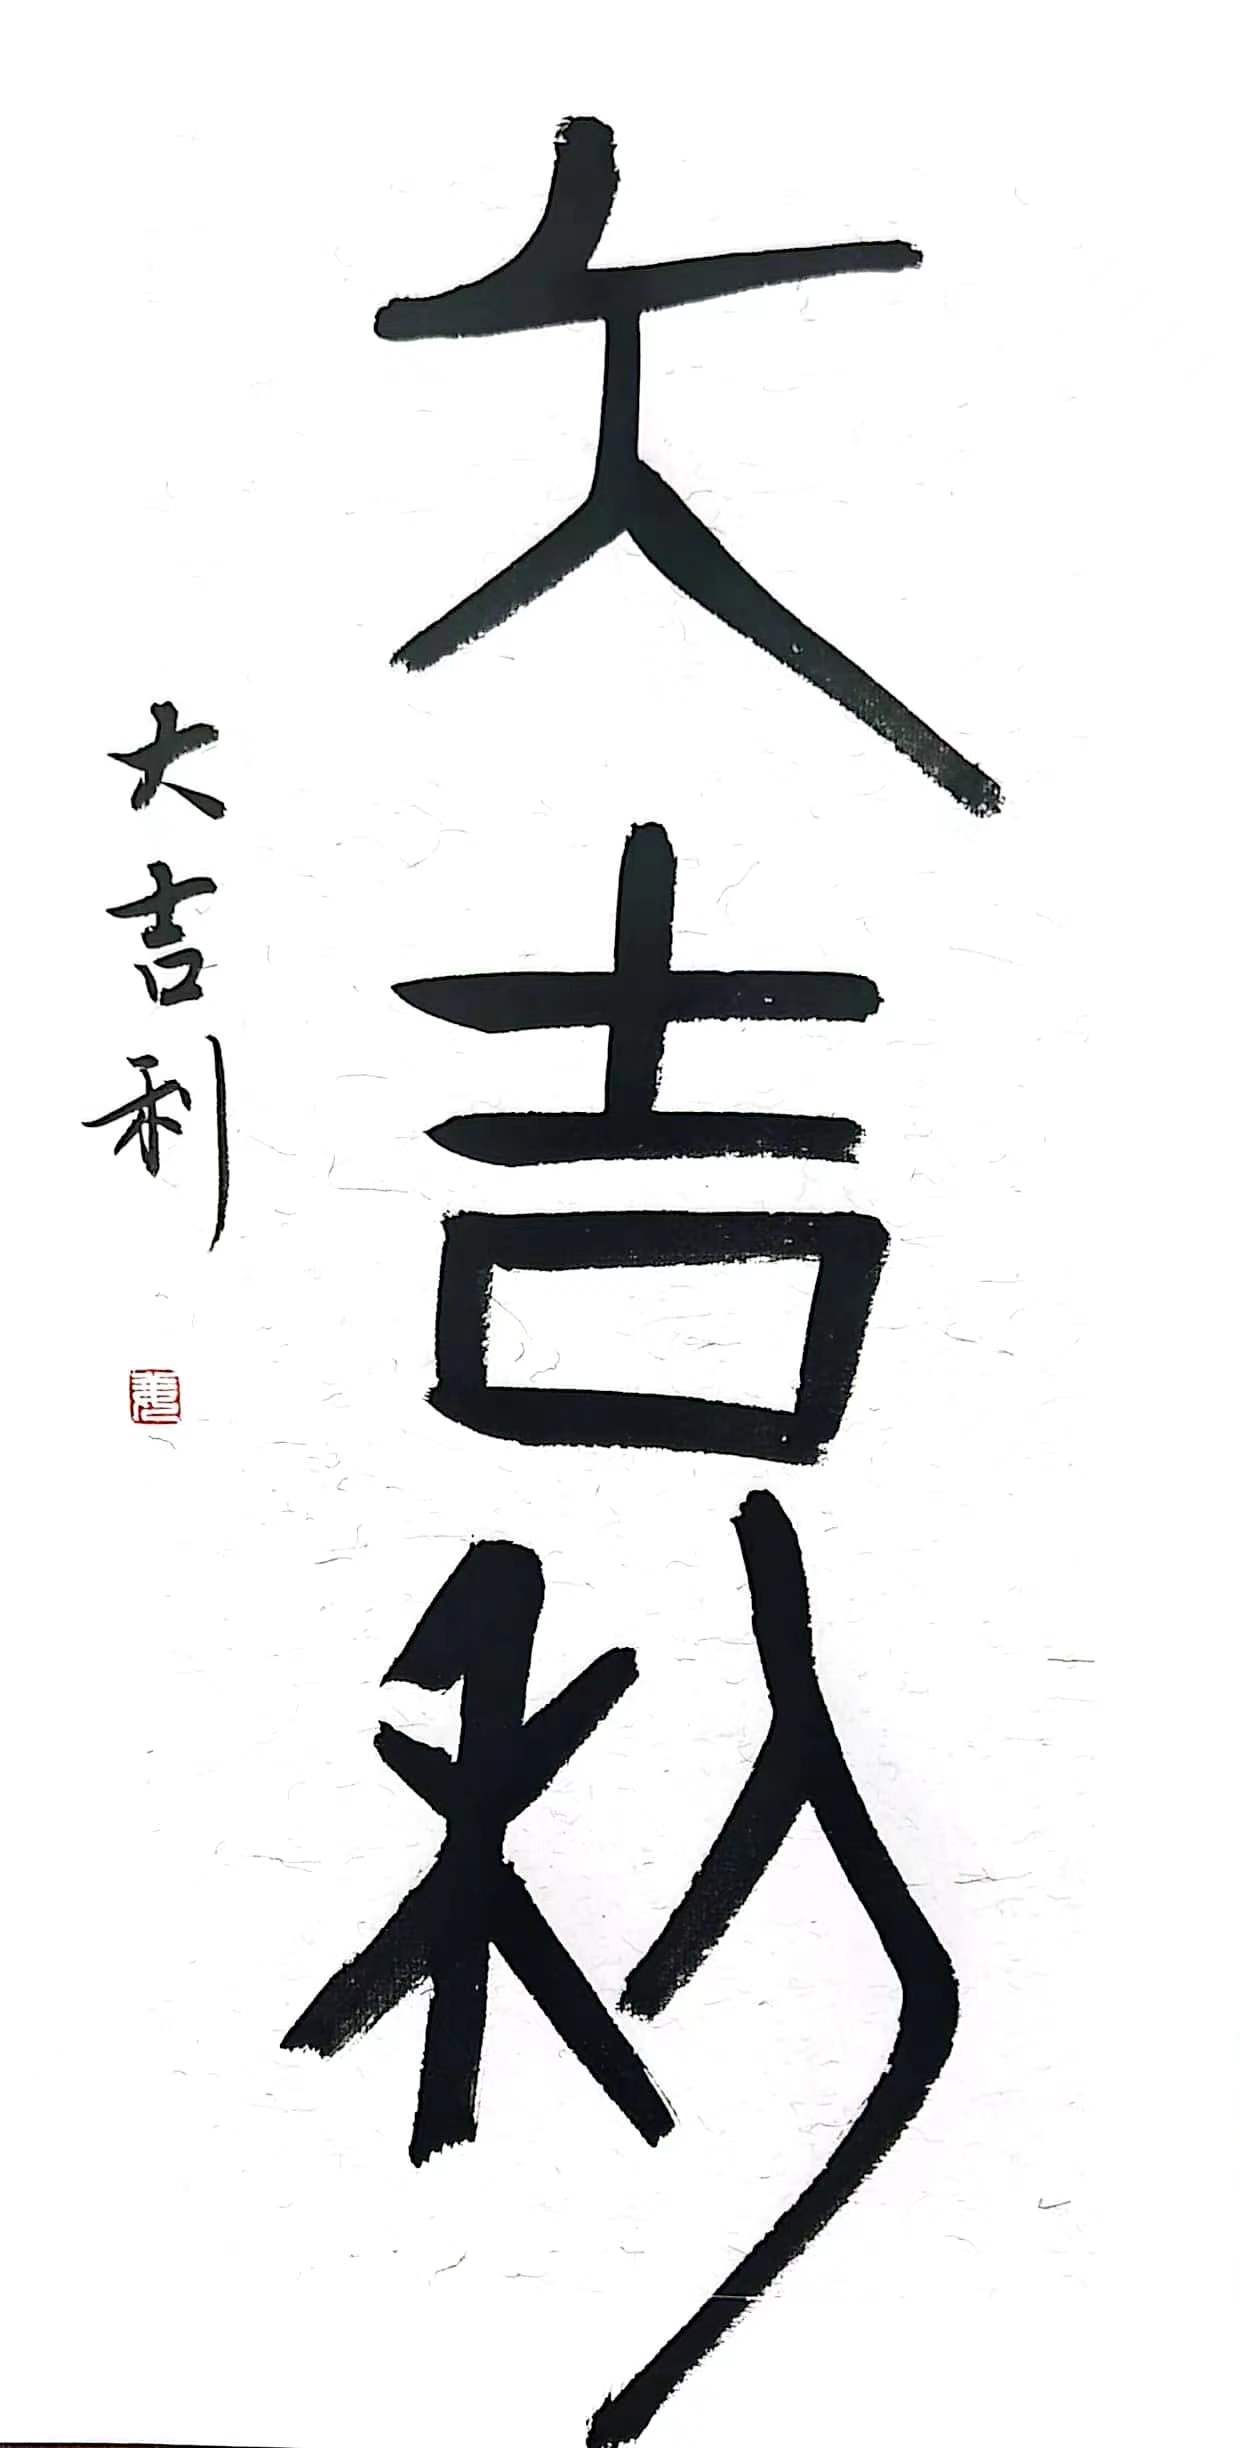 大吉利
大吉利